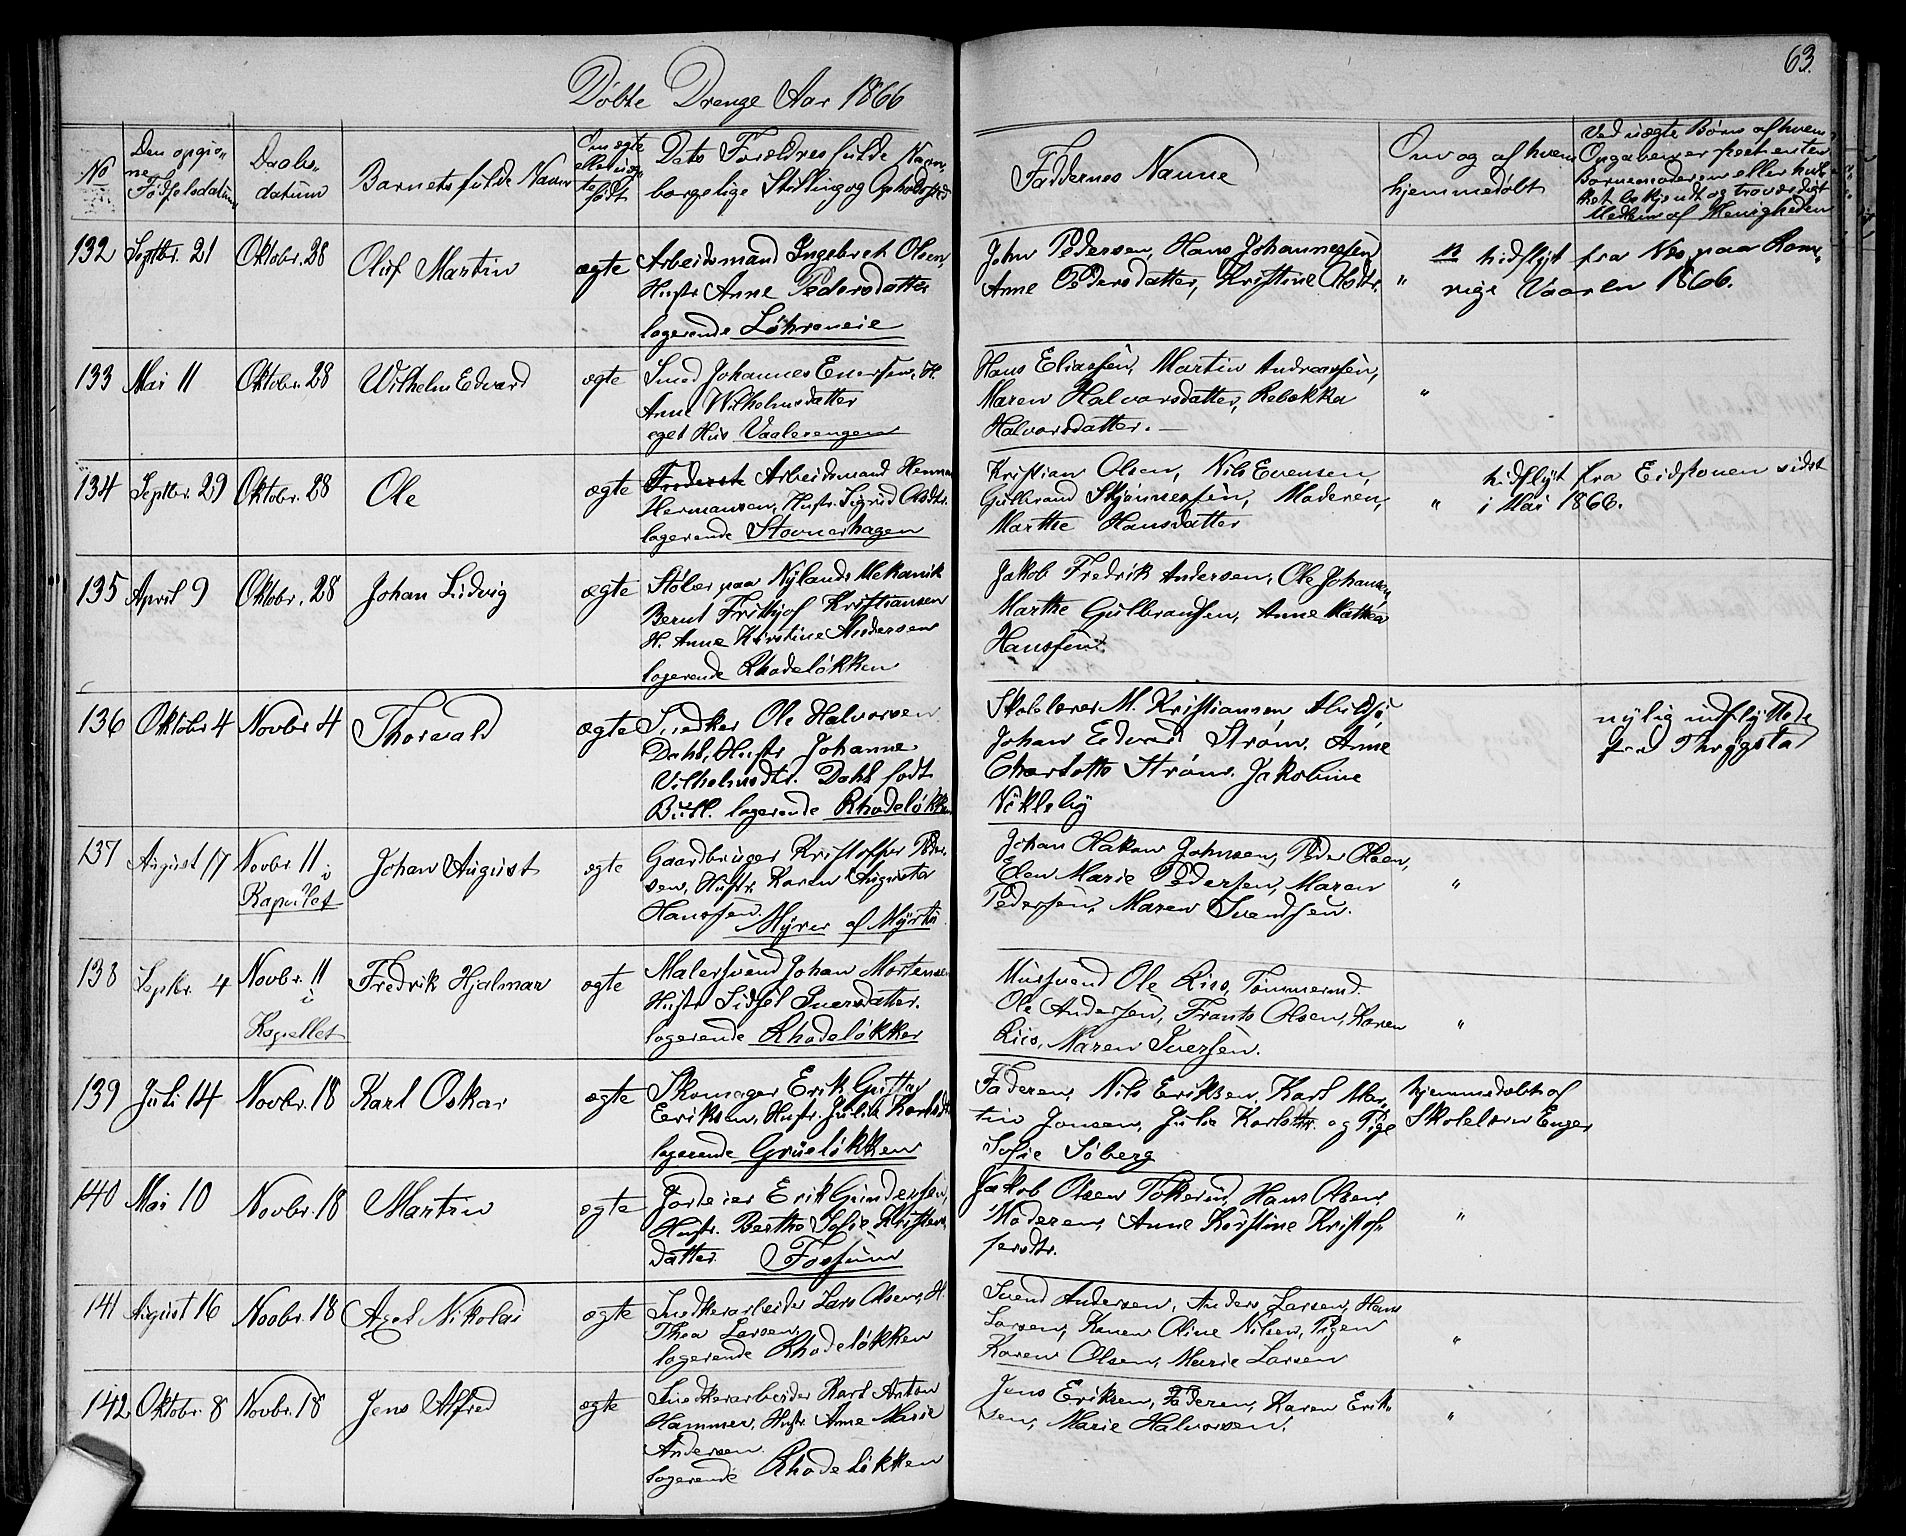 63.
Döbte Drenge Aar 1866
No
Den opgivne Födselsdatum
Daabsdatum
Barnets fulde Navn
Om ægte eller uægte födt
Dets Forældres fulde Navn, borgelige Stilling og Opholdssted
Faddernes Navne
Om og af hvem hjemmedöbt
Ved uægte Börn af hvem Opgaven er
Barnemoderen eller
bekjendt og troværdigt
Medlem af Menigheden
132 Septbr. 21 Oktobr. 28 Oluf Martin ægte
Arbeidsmand Ingebret Olsen,
Hustr Anne Pedersdatter
logerende Löhreneie
John Pedersen, Hans Johannessen
Anne Pedersdatter, Kristine Olsdtr. "
hidflyt fra Nes paa Rome-
rige Vaaren 1866.
133 Mai 11 Oktobr. 28 Wilhelm Edvard ægte
Smed Johannes Enersen, H.
Anne Wilhelmsdatter
eget Hus Vaalerengen
Hans Eliassen, Martin Andreassen,
Maren Halvorsdatter, Rebekka
Halvorsdatter. — "
134 Septbr. 29 Oktobr. 28 Ole ægte
Arbeidsmand Herman
Hermansen, Hustr. Sigrid Olsdtr.
logerende Stovnerhagen
Kristian Olsen, Nils Evensen,
Gulbrand Skjönnessen, Moderen,
Marthe Hansdatter "
hidflyt fra Eidskonen sidst
i Mai 1866.
135 April 9 Oktobr. 28 Johan Ludvig ægte
Stöber paa Nylands Mekanik
Bernt Frithjof Kristiansen
H. Anne Kirstine Andersen
logerende Rhodelökken
Jakob Fredrik Andersen, Ole Johansen,
Marthe Gulbransen, Anne Mathea
Hanssen.
136 Oktobr 4 Novbr 4 Thorvald ægte
Snedker Ole Halvorsen
Dahl, Hustr Johanne
Vilhelmsdtr. Dahl födt
Bull. logerende Rhodelökken
Skolelærer M. Kristiansen
Johan Edvard Ström. Anne
Charlotte Ström. Jakobine
Nikleby
nylig indflyttede
fra Thrygstad
137 August 17 Novbr 11 i
Kapellet
Johan August ægte
Gaardbruger Kristoffer Peder-
sen, Hustr. Karen Augusta
Hanssen. Myrer af
Johan Hakon Johnsen, Peder Olsen,
Elen Marie Pedersen, Maren
Pedersen, Maren Svendsen. "
138 Septbr. 4 Novbr. 11
i
Kapellet
Fredrik Hjalmar ægte
Malersvend Johan Mortensen
Hustr Sidsel Iversdatter.
logerende Rhodelökken
Mursvend Ole Riis, Tömmermd.
Ole Andersen, Frants Olsen, Karen
Riis, Maren Iversen. "
139 Juli 14 Novbr. 18 Karl Oskar ægte
Skomager Erik Gustav
Eriksen, Hustr. Julie Karlsdtr
logerende Grüneløkken
Faderen, Nils Eriksen, Karl Mar-
tin Jonsen, Julie Karlsdtr. og Pige
Sofie Söberg
hjemmedöbt af
Skolelærer Enger
140 Mai 10 Novbr. 18 Martin ægte
Jordeier Erik Gundersen,
Hustr. Berthe Sofie Kristens-
datter. Fossum
Jakob Olsen Tokerud, Hans Olsen,
Moderen, Anne Kirstine Kristof-
fersdtr. "
141 August 16 Novbr. 18 Axel Nikolai ægte
Snedkerarbeider Lars Olsen, H.
Thea Larsen,
logerende Rhodelökken
Svend Andersen, Anders Larsen, Hans
Larsen, Karen Oline Nilsen, Pigen
Karen Olsen, Marie Larsen "
142 Oktobr. 8 Novbr. 18 Jens Alfred ægte
Snedkerarbeider Karl Anton
Hammer, Hustr. Anne Marie
Andersen
logerende Rhodelökken
Jens Eriksen, Faderen, Karen Erik-
sen, Marie Halvorsen. "